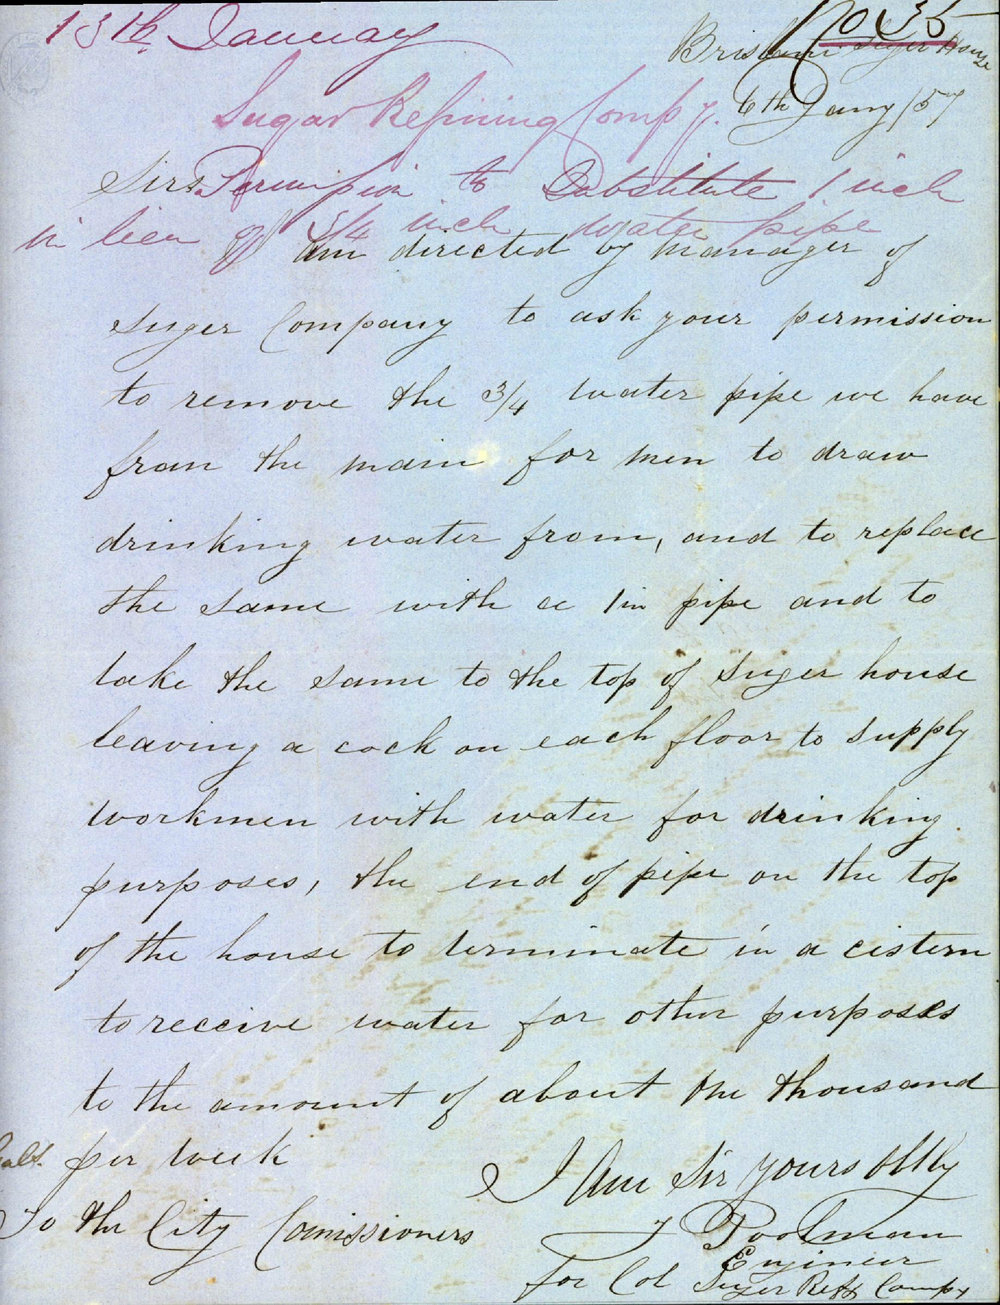 No 35
13th January
Brisbane Suger House
6th Jany /57
Sugar Refining Compy.
Sirs
Permission to Substitute 1 inch
in lieu of 3/4 inch water pipe
am directed by manager of
Suger Company to ask your permission
to remove the 3/4 water pipe we have
from the main for men to draw
drinking water from, and to replace
the same with a 1 in pipe and to
take the same to the top of Suger house
leaving a cock on each floor to supply
workmen with water for drinking
purposes, the end of pipe on the top
of the house to terminate in a cistern
to receive water for other purposes
to the amount of about one thousand
Gals. per week
I Am Sir yours obtly
To the City Comissioners
J Poolman
Engineer
for Col Suger Refg Compy